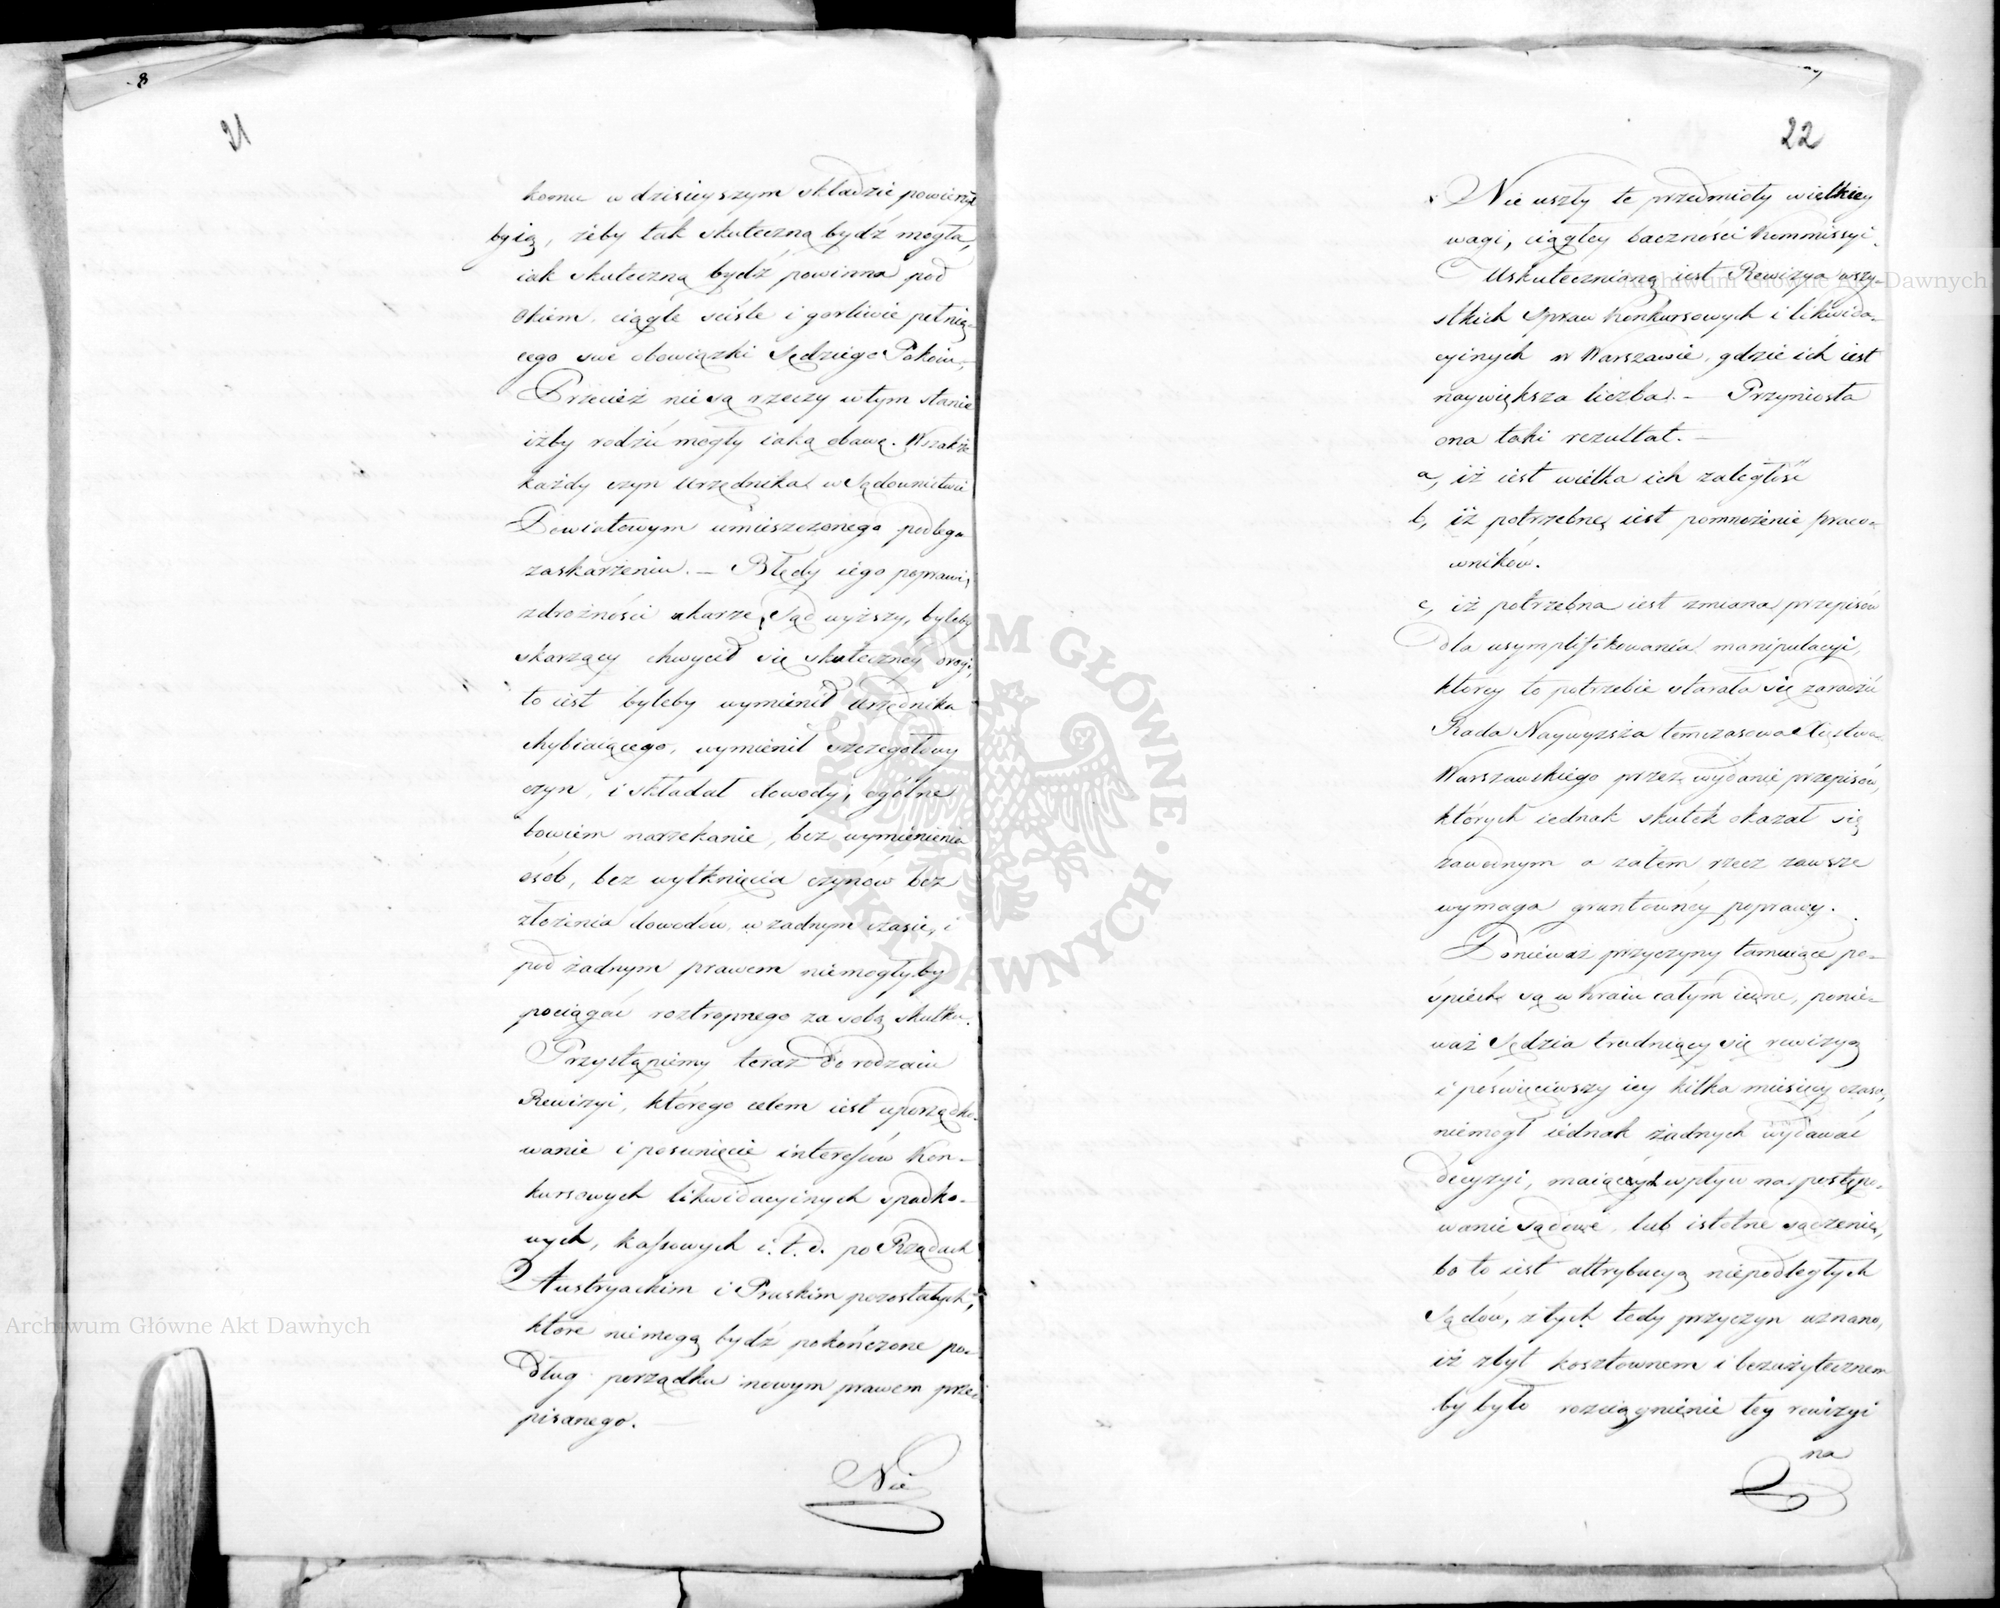 8
21
komu w dzisieyszym składzie powierzo
byią, żeby tak skuteczną bydź mogła,
iak skuteczną bydź powinna pod
Okiem, ciągle ściśle i gorliwie pełnią-
cego swe obowiązki Sędziego Pokoiu,
Przecież nie są rzeczy w tym stanie
iżby rodzić mogły iaką obawę. Wszakże
każdy czyn Urzędnika w Sądownictwie
Powiatowym umieszczonego podlega
zaskarżeniu. — Błędy iego poprawi,
zdrożności ukarze Sąd wyższy, byleby
skarżący chwycił się skuteczney drogi,
to iest byleby wymienił Urzędnika
chybiaiącego, wymienił szczegółowy
czyn, i składał dowody; ogólne
bowiem narzekanie, bez wymienienia
osób, bez wytknięcia czynów bez
złożenia dowodów, w żadnym czasie, i
pod żadnym prawem niemogłyby
pociągać roztropnego za sobą skutku.
Przystąpiemy teraz do rodzaiu
Rewizyi, którego celem iest uporządko-
wanie i posunięcie interessów Kon-
kursowych likwidacyinych spadko-
wych, kassowych i. t. d. po Rządach
Austryackim i Pruskim pozostałych,
które niemogą bydź pokończone po-
dług porządku nowym prawem prze-
pisanego. —
Nie
22
Nie uszły te przedmioty wielkiey
wagi, ciągłey baczności Kommissyi.
Uskutecznioną iest Rewizya wszy-
stkich Spraw Konkursowych i likwida-
cyinych w Warszawie, gdzie ich iest
naywiększa liczba. — Przyniosła
ona taki rezultat. —
a, iż iest wielka ich zaległość
b, iż potrzebne iest pomnożenie praco-
wników.
c, iż potrzebna iest zmiana przepisów
dla usymplifikowania manipulacyi,
którey to potrzebie starała się zaradzić
Rada Naywyższa temczasowa Xięstwa
Warszawskiego przez wydanie przepisów,
których iednak skutek okazał się
zawodnym a zatem rzecz zawsze
wymaga gruntowney poprawy.
Ponieważ przyczyny tamuiące po-
śpiech są w Kraiu całym iedne, ponie-
waż Sędzia trudniący się rewizyą
i poświęciwszy iey kilka miesięcy czasu,
niemogł iednak żadnych wydawać
decyzyi, maiących wpływ na postępo-
wanie sądowe, lub istotne sądzenie,
bo to iest attrybucyą niepodległych
Sądów, z tych tedy przyczyn uznano,
iż zbyt kosztownem i bezużytecznem
by było rozciągnienie tey rewizyi
na
ARCHIWUM GŁÓWNE AKT DAWNYCH
Archiwum Główne Akt Dawnych
Archiwum Główne Akt Dawnych